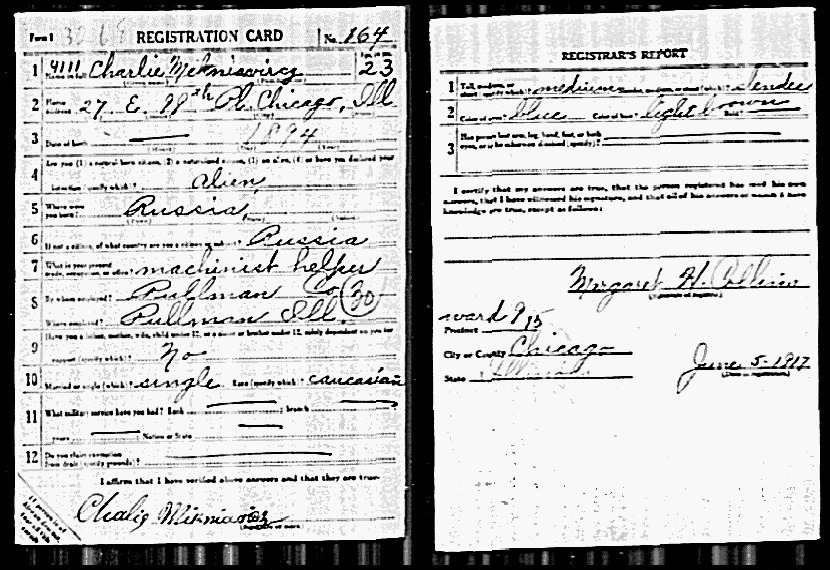 Form 1 REGISTRATION CARD No. 164
1 Name in full Charlie Mekniswircz Age, in yrs. 23
2 Home address 27 E. 98th Pl. Chicago, Ill
3 Date of birth 1894
(Month) (Day) (Year)
Are you (1) a natural born citizen, (2) a naturalized citizen, (3) an alien, (4) or have you declared your
4 intention (specify which)? alien
5 Where were you born? Russia
(Town) (State) (Nation)
6 If not a citizen, of what country are you a citizen or subject? Russia
7 What is your present trade, occupation, or office? machinist helper
8 By whom employed? Pullman Co 30
Where employed? Pullman Ill.
Have you a father, mother, wife, child under 12, or a sister or brother under 12, solely dependent on you for
9 support (specify which)? no
10 Married or single (which)? single Race (specify which)? caucasian
11 What military service have you had? Rank branch
years Nation or State
12 Do you claim exemption
from draft (specify grounds)?
I affirm that I have verified above answers and that they are true.
Chalig
(Signature or mark)
REGISTRAR'S REPORT
1 Tall, medium, or short (specify which)? medium Slender, medium, or stout (specify which)? slender
2 Color of eyes? blue Color of hair? light brown Bald?
3 Has person lost arm, leg, hand, foot, or both
eyes, or is he otherwise disabled (specify)?
I certify that my answers are true, that the person registered has read his own
answers, that I have witnessed his signature, and that all of his answers of which I have
knowledge are true, except as follows:
Margaret H. Collins
(Signature of registrar)
ward 9 15
Precinct
City or County Chicago
State Illinois
June 5-1917
(Date of registration)